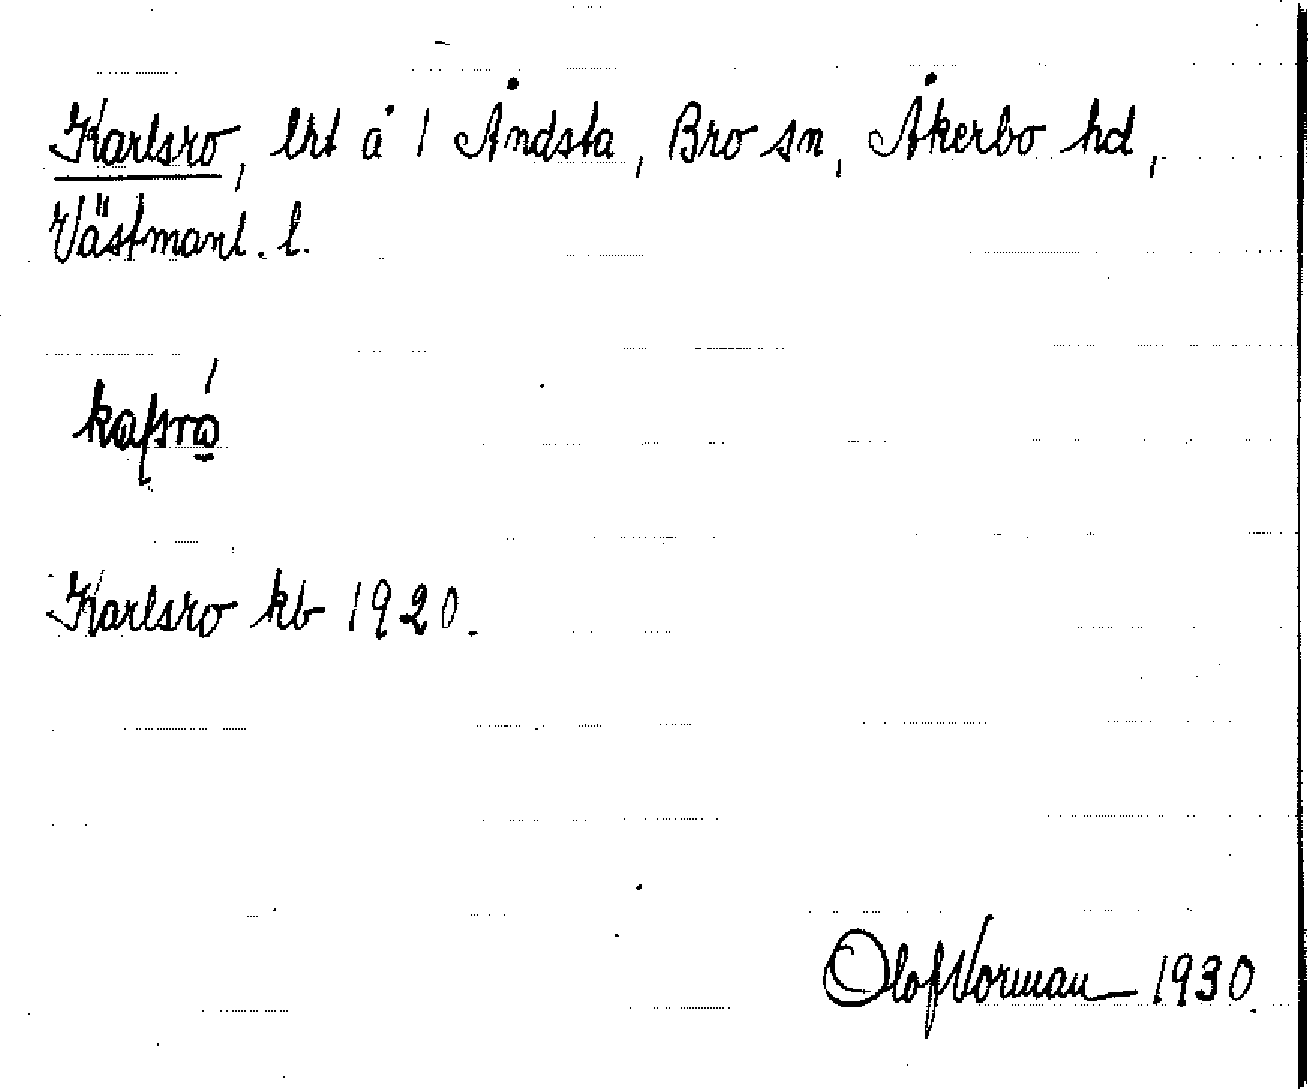 Karlsro, lht å 1 Åndsta, Bro sn, Åkerbo hd,
Västmanl. l.
Karlsro kb 1920.
Olof Norman 1930.